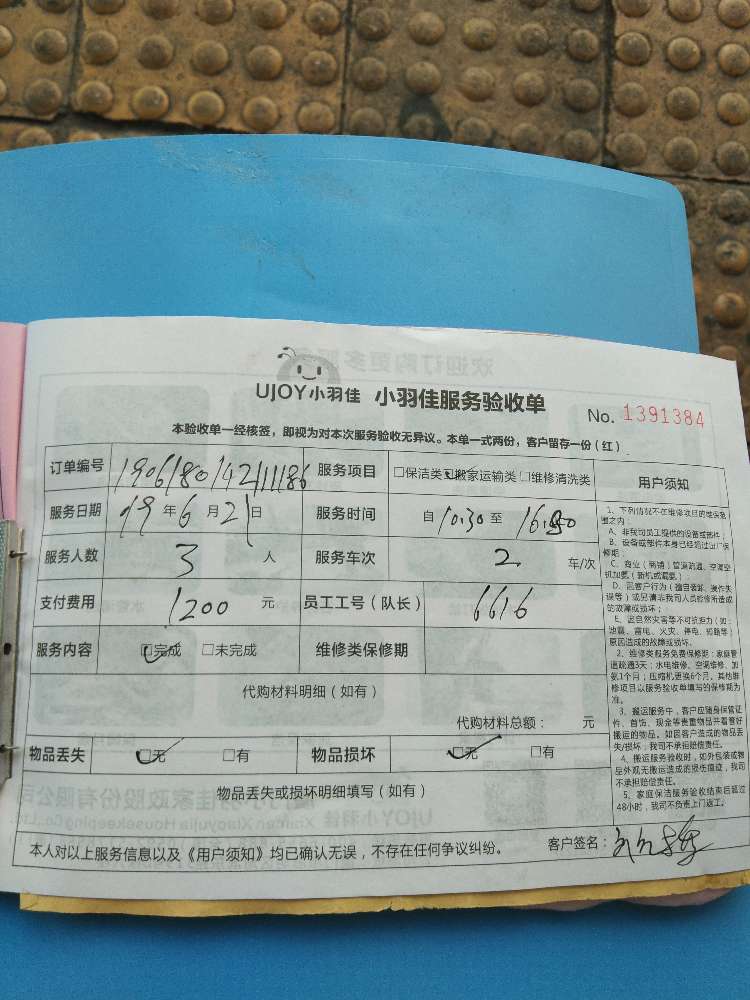 UJOY小羽佳 小羽佳服务验收单 No. 1391384
本验收单一经核签，即视为对本次服务验收无异议。本单一式两份，客户留存一份（红）
订单编号 190618014211186 服务项目 □保洁类 ☑搬家运输类 □维修清洗类 用户须知
服务日期 19年6月21日 服务时间 自 10:30 至
服务人数 3 人 服务车次 2 车/次
支付费用 1200 元 员工工号（队长） 6616
服务内容 ☑完成 □未完成 维修类保修期
代购材料明细（如有）
代购材料总额： 元
物品丢失 ☑无 □有 物品损坏 ☑无 □有
物品丢失或损坏明细填写（如有）
本人对以上服务信息以及《用户须知》均已确认无误，不存在任何争议纠纷。 客户签名：
1、下列情况不在维修项目的维保范
围之内：
A、非我司员工提供的设备或部件；
B、设备或部件本身已经超过出厂保
修期；
C、商业（商铺）管道疏通、空调空
调加氨（新机或漏氨）；
D、因客户行为（擅自装卸、操作失
误等）或另请非我司人员检修所造成
的故障或损坏；
E、因自然灾害等不可抗拒力（如：
地震、雷电、火灾、停电、短路等）
原因造成的故障或损坏。
2、维修类服务免费保修期：家庭管
道疏通3天；水电维修、空调维修、加
氨1个月；压缩机更换6个月。其他维
修项目以服务验收单填写的保修期为
准。
3、搬运服务中，客户应随身保管证
件、首饰、现金等贵重物品并看管好
搬运的物品。如因客户造成的物品丢
失/损坏，我司不承担赔偿责任。
4、搬运服务验收时，如外包装或物
品外观无搬运造成的损伤痕迹，我司
不承担赔偿责任。
5、家庭保洁服务验收结束后超过
48小时，我司不负责上门返工。